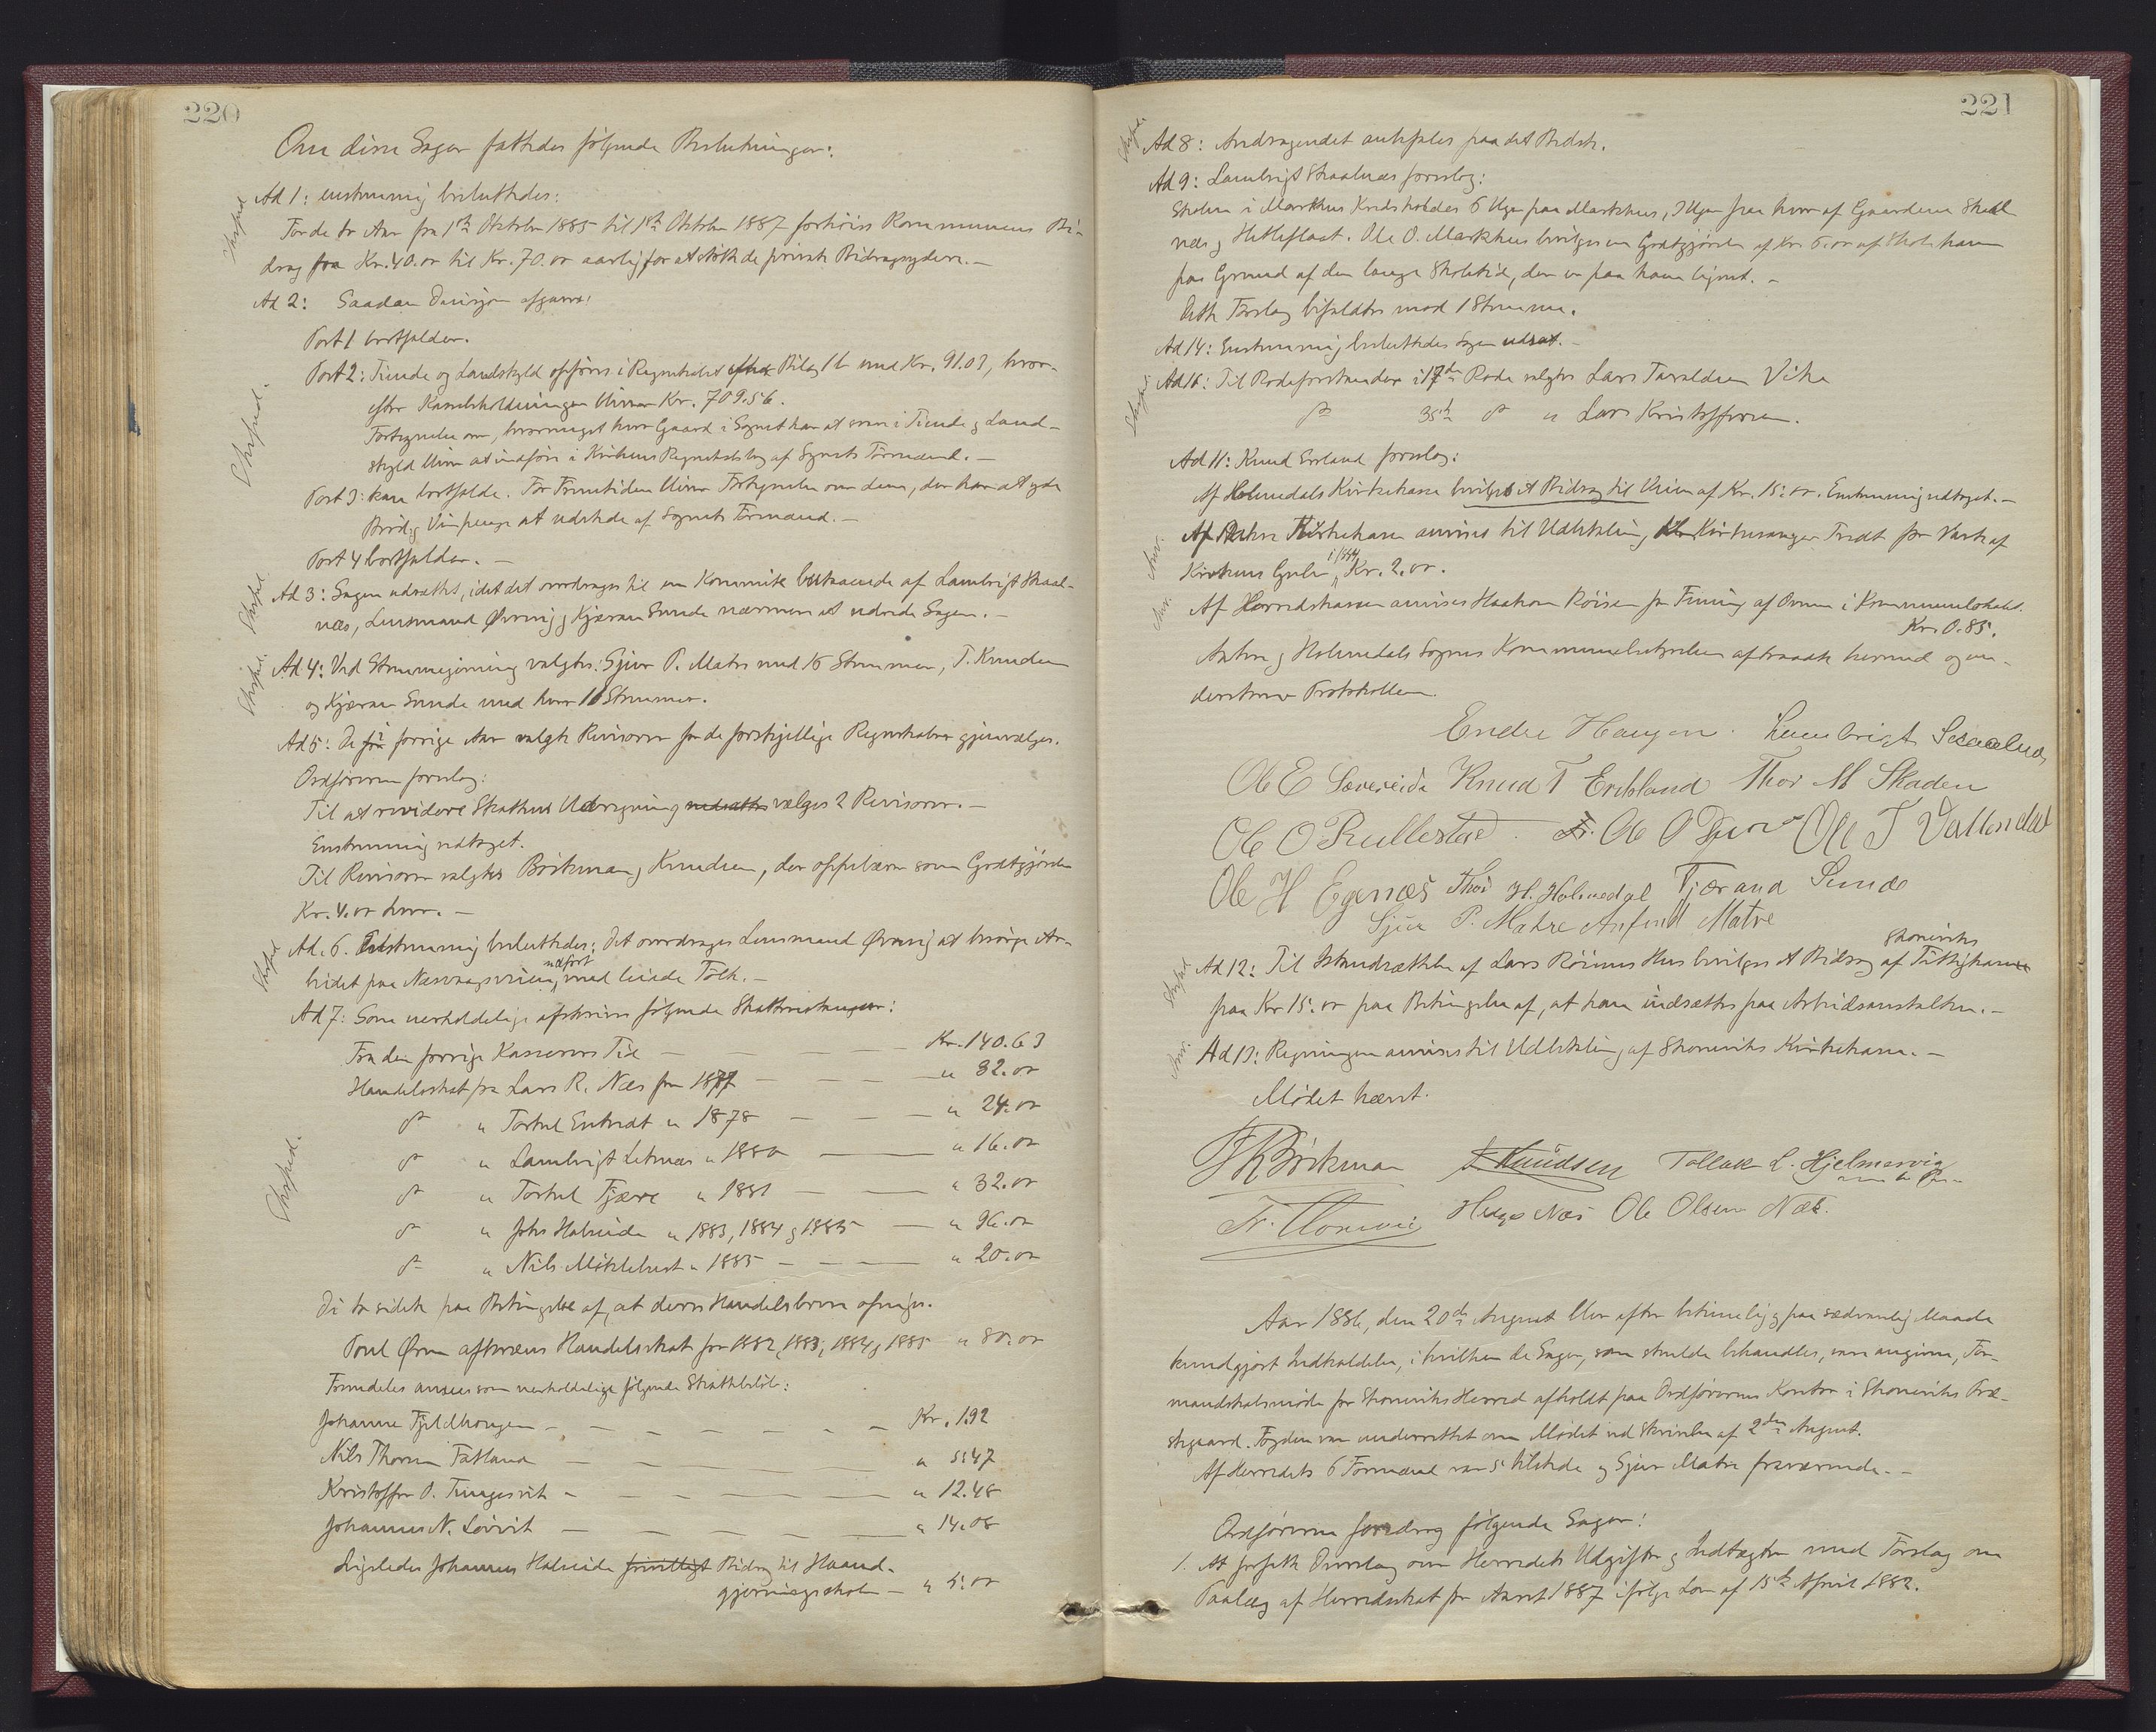 220
Om disse Sager fattedes følgende Beslutninger:
Ad 1: enstemmig besluttedes:
For de to Aar fra 1ste Oktober 1885 til 1ste Oktober 1887 forhøies Kommunens Bi-
drag fra Kr. 40.00 til Kr. 70.00 aarlig for at støtte de private Bidragsydere.—
Ad 2: Saadan Decision afgaves:
Post 1 bortfalder.
Post 2: Tiende og Landskyld opføres i Regnskabet efter Bilag 1 b med Kr. 91.03, hvor-
efter Kassebeholdningen bliver Kr. 709.56.
Fortegnelse om, hvormeget hver Gaard i Sognet har at svare i Tiende og Land-
skyld bliver at indføre i Kirkens Regnskabsbog af Sognets Formænd.—
Post 3: kan bortfalde. For Fremtiden bliver Fortegnelse over dem, der har at yde
Brød og Vinpenge at udstede af Sognets Formænd.—
Post 4 bortfalder.—
Ad 3: Sagen udsættes, idet det overdrages til en Komite bestaaende af Lambrigt Skaal-
næs, Lensmand Ørevig og Kjæran Sunde nærmere at udrede Sagen.—
Ad 4: Ved Stemmegivning valgtes: Sjur P. Matre med 15 Stemmer, T. Knudsen
og Kjæran Sunde med hver 10 Stemmer.
Ad 5: De i forrige Aar valgte Revisorer for de forskjellige Regnskaber gjenvælges.
Ordføreren foreslog:
Til at revidere Skattens Udregning vælges 2 Revisorer.—
Enstemmig vedtaget.
Til Revisorer valgtes Børkman og Knudsen, der oppebærer som Godtgjørelse
Kr. 4.00 hver.—
Ad. 6. Enstemmig besluttedes: Det overdrages Lensmand Ørevig at besørge Ar-
beidet paa Næsvaagsveien udført med leiede Folk.—
Ad 7: Som uerholdelige afskrives følgende Skatterestancer:
Fra den forrige Kasserers Tid — Kr. 140.63
Handelsskat fra Lars R. Næs for 1877 — " 32.00
do " Torkel Entredt " 1878 — " 24.00
do " Lambrigt Letnæs " 1880 — " 16.00
do " Torkel Tjære " 1881 — " 32.00
do " Johs Halseide " 1883, 1884 og 1885 — " 96.00
do " Nils Miklebust " 1885 — " 20.00
De to sidste paa Betingelse af, at deres Handelsbreve afsiges.
Poul Øren afskrives Handelsskat for 1882, 1883, 1884 og 1885 " 80.00
Fremdeles ansees som uerholdelige følgende Skattebeløb:
Johanne Fjeldhaugen — Kr. 1.92
Nils Thorsen Fatland — " 5.47
Kristoffer O. Tungesvik — " 12.48
Johannes N. Løvvik — " 14.08
Ligeledes Johannes Halseide frivilligt Bidrag til Haand-
gjerningsskolen — " 5.00
221
Ad 8: Andragendet anbefales paa det Bedste.
Ad 9: Lambrigt Skaalnæs foreslog:
Skolen i Markhus Kreds holdes 6 Uger paa Markhus, 3 Uger paa hver af Gaardene Skaal-
næs og Hetleflaat. Ole O. Markhus bevilges en Godtgjørelse af Kr. 6.00 af Skolekassen
paa Grund af den lange Skoletid, der er paa ham lignet.—
Dette Forslag bifaldtes mod 1 Stemme.
Ad 14: Enstemmig besluttedes Sagen udsat.—
Ad 15: Til Rodeforstander i 17de Rode valgtes Lars Taraldsen Vike
do 35te do " Lars Kristoffersen.
Ad 11: Knud Eresland foreslog:
Af Holmedals Kirkekasse bevilges et Bidrag til Veien af Kr. 15.00. Enstemmig vedtaget.—
Af Aakre Kirkekasse anvises til Udbetaling Kirkesanger Tvedt for Vask af
Kirkens Gulv i 1884 Kr. 2.00.
Af Herredskassen anvises Haakon Røisen for Fining af Ovnen i Kommunelokalet.
Kr. 0.85.
Aakre og Holmedals Sognes Kommunebestyrelsen aftraadte herved og un-
derskrev Protokollen.
Endre Haugen. Lambrigt Skaalnæs
Ole E Sævereide Knud T Eresland Thor M Skaden
Ole O Rullestad. Ole O Djuv Ole T Vattendal
Ole H Egenæs Thor H. Holmedal Tjærand Sunde
Sjur P. Matre Anfind Matre
Ad 12: Til Istandsættelse af Lars Røiens Hus bevilges et Bidrag af Skoneviks Fattigkasse
paa Kr 15.00 paa Betingelse af, at han indsættes paa Arbeidsanstalten.—
Ad 13: Regningen anvises til Udbetaling af Skoneviks Kirkekasse.—
Mødet hævet.
Børkman T. Knudsen Tollak L. Hjelmervig
Helge Næs Ole Olsen Næs.
Aar 1886, den 20de August blev efter betimelig og paa sædvanlig Maade
kundgjort Indkaldelse, i hvilken de Sager, som skulde behandles, vare angivne, For-
mandskabsmøde for Skoneviks Herred afholdt paa Ordførerens Kontor i Skoneviks Præ-
stegaard. Fogden var underrettet om Mødet ved Skrivelse af 2den August.
Af Herredets 6 Formænd var 5 tilstede og Sjur Matre fraværende.—
Ordføreren foredrog følgende Sager:
1. At forfatte Overslag over Herredets Udgifter og Indtægter med Forslag om
Paalæg af Herredsskat for Aaret 1887 ifølge Lov af 15de April 1882.